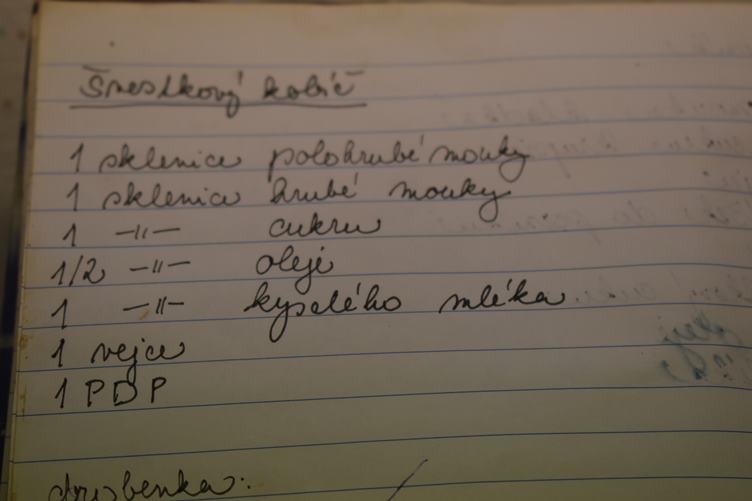 Švestkový koláč
1 sklenice polohrubé mouky
1 sklenice hrubé mouky
1 -"- cukru
1/2 -"- oleje
1 -"- kyselého mléka
1 vejce
1 PDP
drobenka: